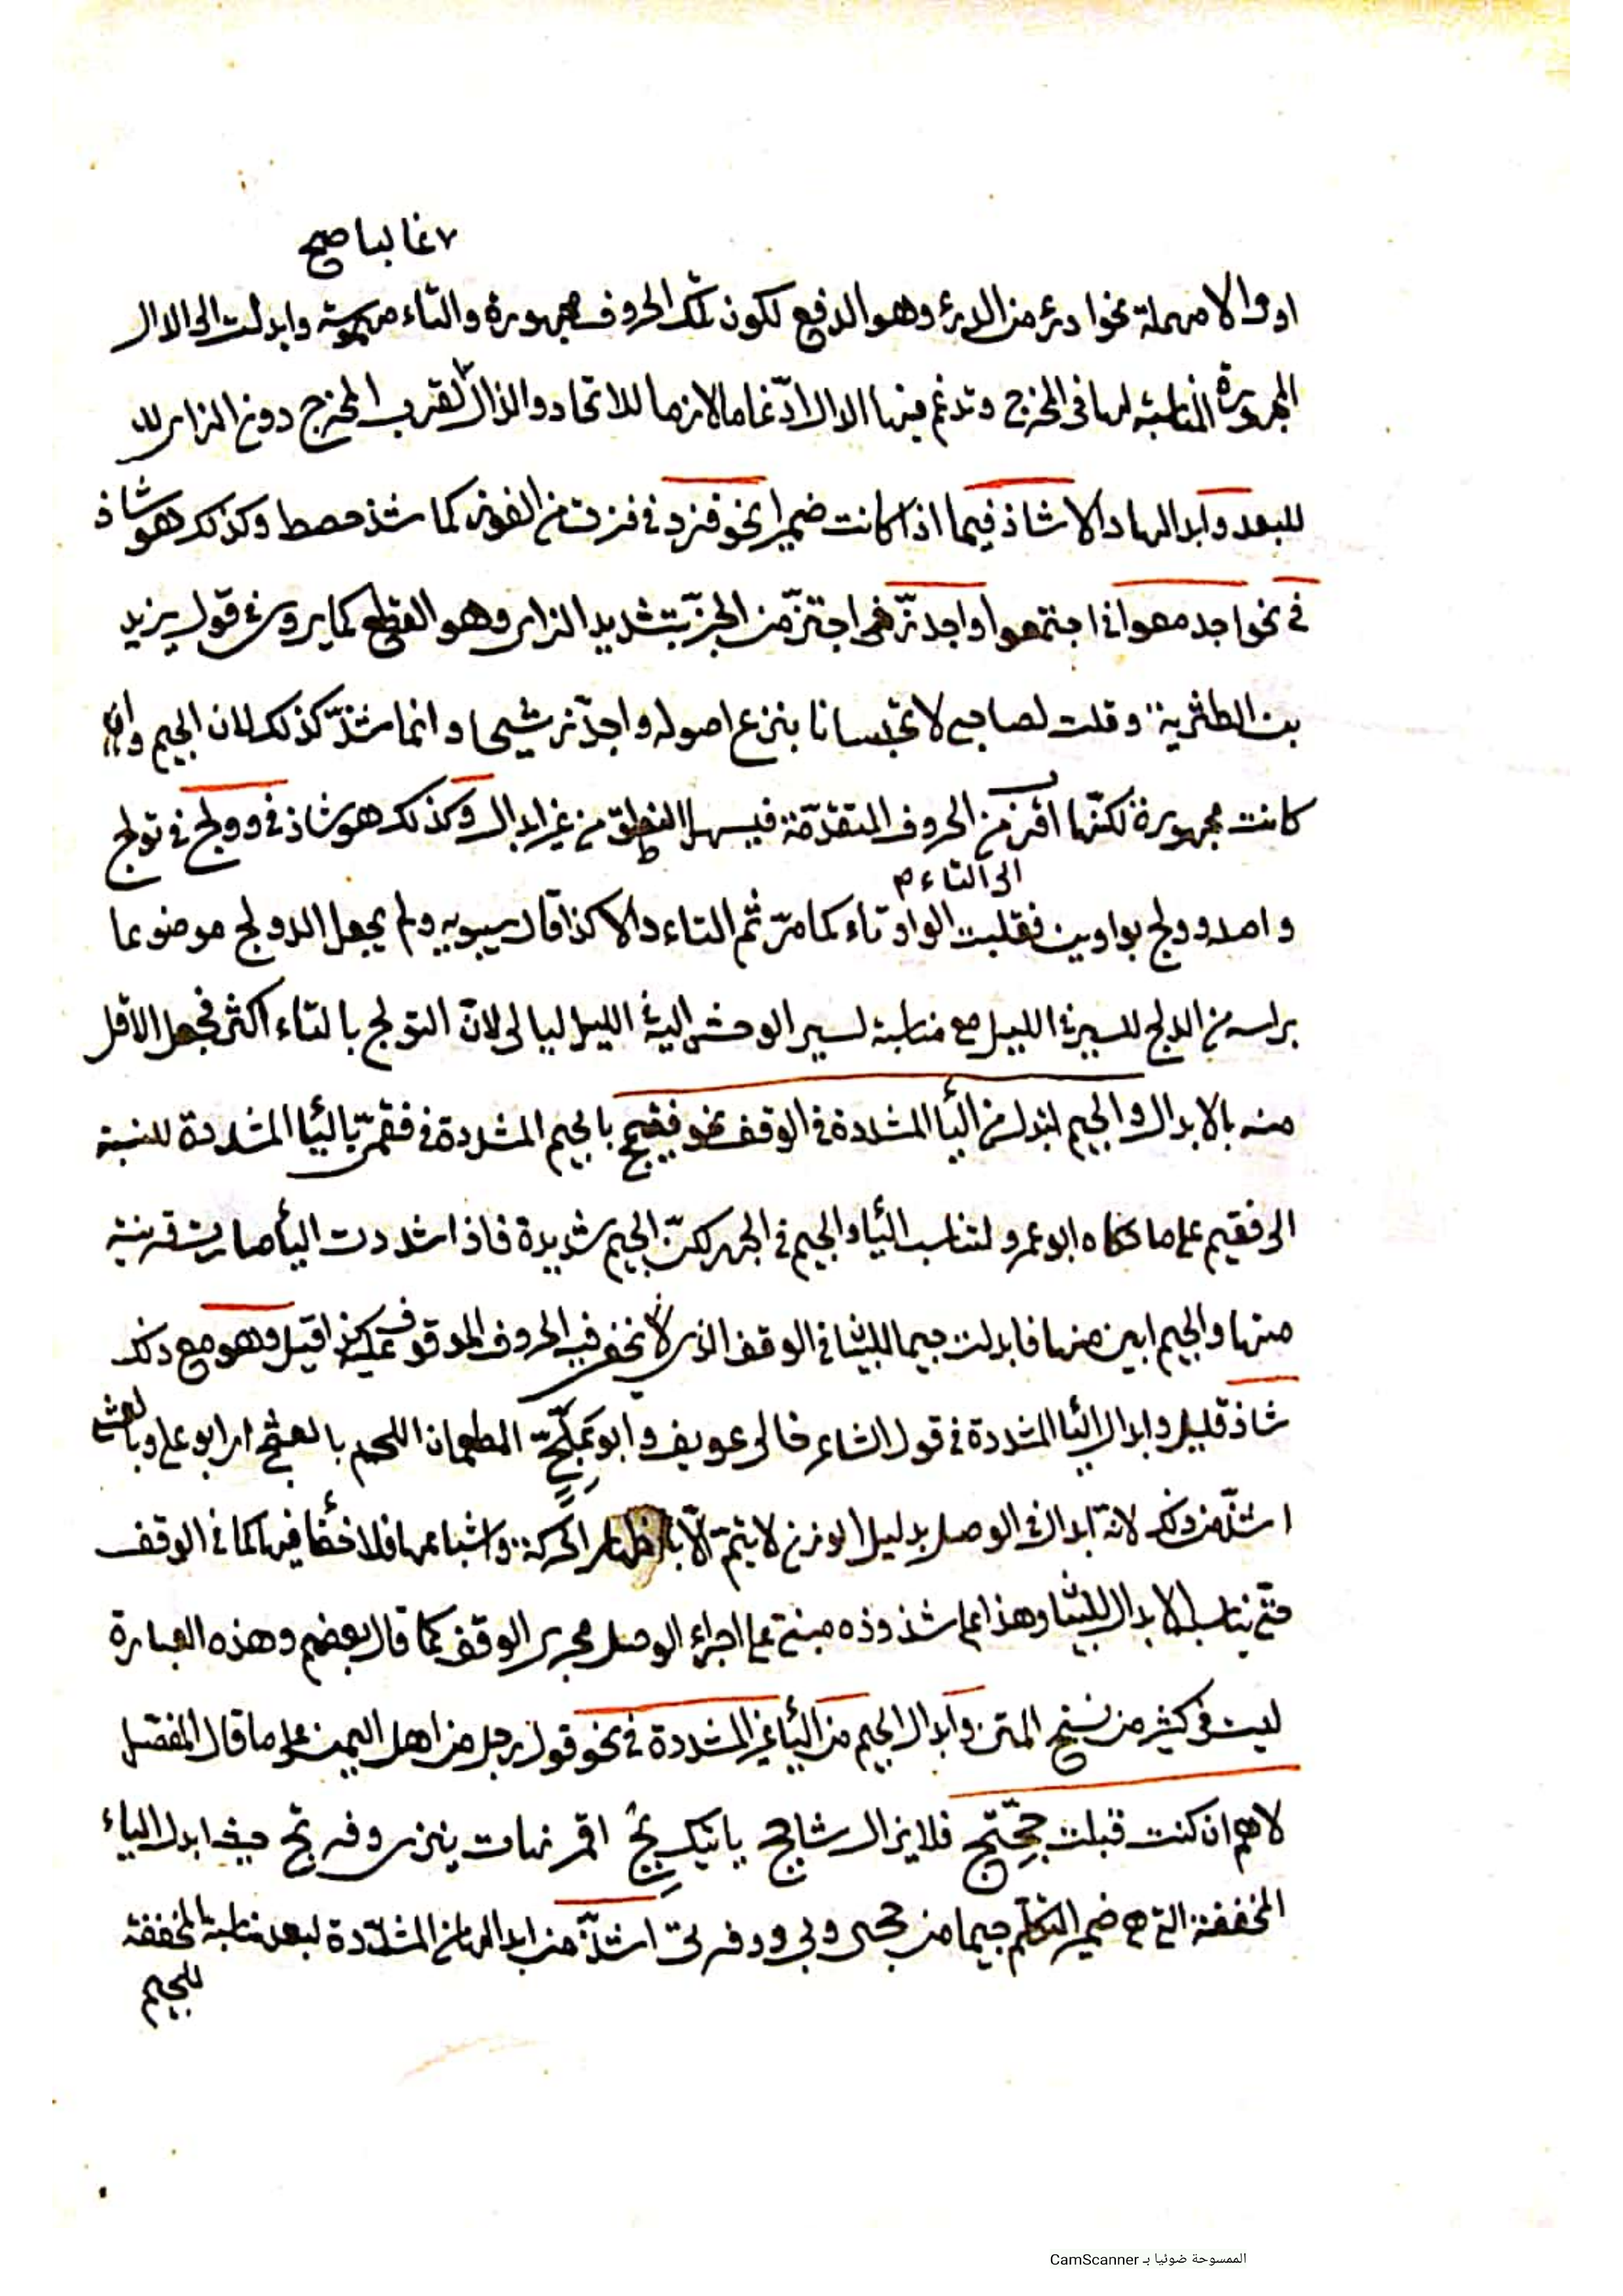 ٧ غالبا صح
او دالا مهملة نحو ادرئ من الدرئ وهو الدفع لكون تلك الحروف مجهورة والتاء مهموسة وابدلت الى الدال
المجهورة المناسبة لها فى المخرج وتدغم فيها الدال ادّغاما لازما للاتحاد والذال لقرب المخرج دون الزاى
للبعد وابدالها دالا شاذ فيما اذا كانت ضميرا نحو فزد فى فزت من الفوز كما شذ حصط وكذلك هو شاذ
فى نحو اجدمعوا فى اجتمعوا واجدزّ فى اجتزّ من الجزّ بتشديد الزاى وهو القطع كما يروى فى قول يزيد
بن الطثرية وقلت لصاحبى لا تحبسانا بنزع اصوله واجدزّ شيحا وانما شذّ كذلك لان الجيم وان
كانت مجهورة لكنّها اقرب من الحروف المتقدّمة فيسهل النطق من غير ابدال وكذلك هو شاذ فى دولج فى تولج
الى التاء م
واصله وولج بواوين فقلبت الواو تاء كما مرّ ثم التاء دالا كذا قال سيبويه ولم يجعل الدولج موضوعا
براسه من الدلج للسير فى الليل مع مناسبة لسير الوحش اليه فى الليل ليالى لانّ التولج بالتاء اكثر فجعل الاقل
منه بالابدال والجيم تبدل من اليأ المشددة فى الوقف نحو فقيمج بالجيم المشددة فى فقيمىّ باليأ المشددة للنسبة
الى فقيم على ما حكاه ابو عمرو لتناسب اليأ والجيم فى الجهر لكنّ الجيم شديدة فاذا شددت اليأ صارت قريبة
منها والجيم ابين منها فابدلت جيما للبيان فى الوقف الذى لا تخفى فيه الحروف الموقوف عليه كذا قيل وهو مع ذلك
شاذ قليل وابدال اليأ المشددة فى قول الشاعر خالى عويف وابو علجّ المطعمان اللحم بالعشجّ اى ابو على وبالعشى
اشذّ من ذلك لانه ابدال فى الوصل بدليل الوزن لا يتمّ الّا باظهار الحركة واشباعها فلا خفأ فيها كما فى الوقف
حتى يناسب الابدال للبيان وهذا على شذوذه مبنىّ على اجراء الوصل مجرى الوقف كما قال بعضهم وهذه العبارة
ليست فى كثير من نسخ المتن وابدال الجيم من اليأ غير المشددة فى نحو قول رجل من اهل اليمن على ما قال المفضل
لاهم ان كنت قبلت حجّتج فلا يزال شاحج ياتيك بج اقمر نهات ينزى وفرتج حيث ابدل الياء
المخففة التى هى ضمير المتكلّم جيما من حجتى وبى ووفرتى اشذّ من ابدالها من المشدّدة لبعد مناسبة المخففة
للجيم
الممسوحة ضوئيا بـ CamScanner